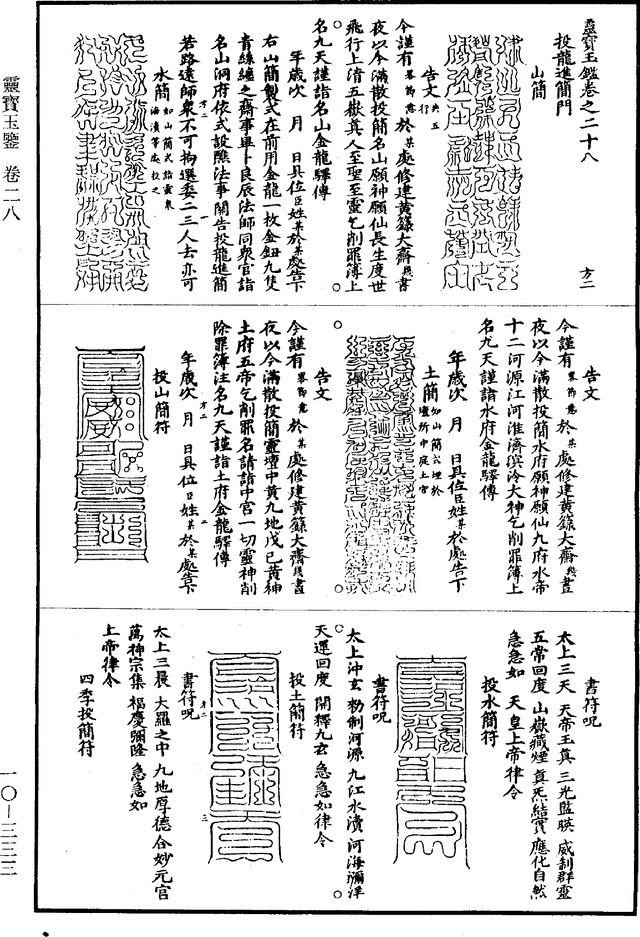 靈寶玉鑑卷之二十八
投龍進簡門
方二
山簡
告文
今謹有 於某處修建黃籙大齋
夜以今滿散投簡名山願神願仙長生度世
飛行上清五嶽真人至聖至靈乞削罪簿上
名九天謹詣名山金龍驛傳
年歲次 月 日具位臣姓某於某處告下
右山簡製式在前用金龍一枚金鈕九隻
青絲纏之齋事畢卜良辰法師同眾官詣
名山洞府依式設醮法事關告投龍進簡
若路遠師眾不可拘選委二三人去亦可
水簡
告文
今謹有 於某處修建黃籙大齋
夜以今滿散投簡水府願神願仙九府水帝
十二河源江河淮濟溟泠大神乞削罪簿上
名九天謹詣水府金龍驛傳
年歲次 月 日具位臣姓某於處告下
土簡
告文
今謹有 於某處修建黃籙大齋
夜以今滿散投簡靈壇中黃九地戊己黃神
土府五帝乞削罪名請詣中宮一切靈神削
除罪簿注名九天謹詣土府金龍驛傳
年歲次 月 日具位臣姓某於某處告下
投山簡符
書符呪
太上三天 天帝王真 三光監暎 威制群靈
五常回度 山嶽藏煙 真炁結實 應化自然
急急如 天皇上帝律令
投水簡符
書符呪
太上沖玄 勑制河源 九江水瀆 河海瀰洋
天運回度 開釋九玄 急急如律令
投土簡符
書符呪
太上三晨 大羅之中 九地厚德 合妙元官
萬神宗集 福慶彌隆 急急如
上帝律令
四季投簡符
靈寶玉鑒 卷二八
一〇—三三三